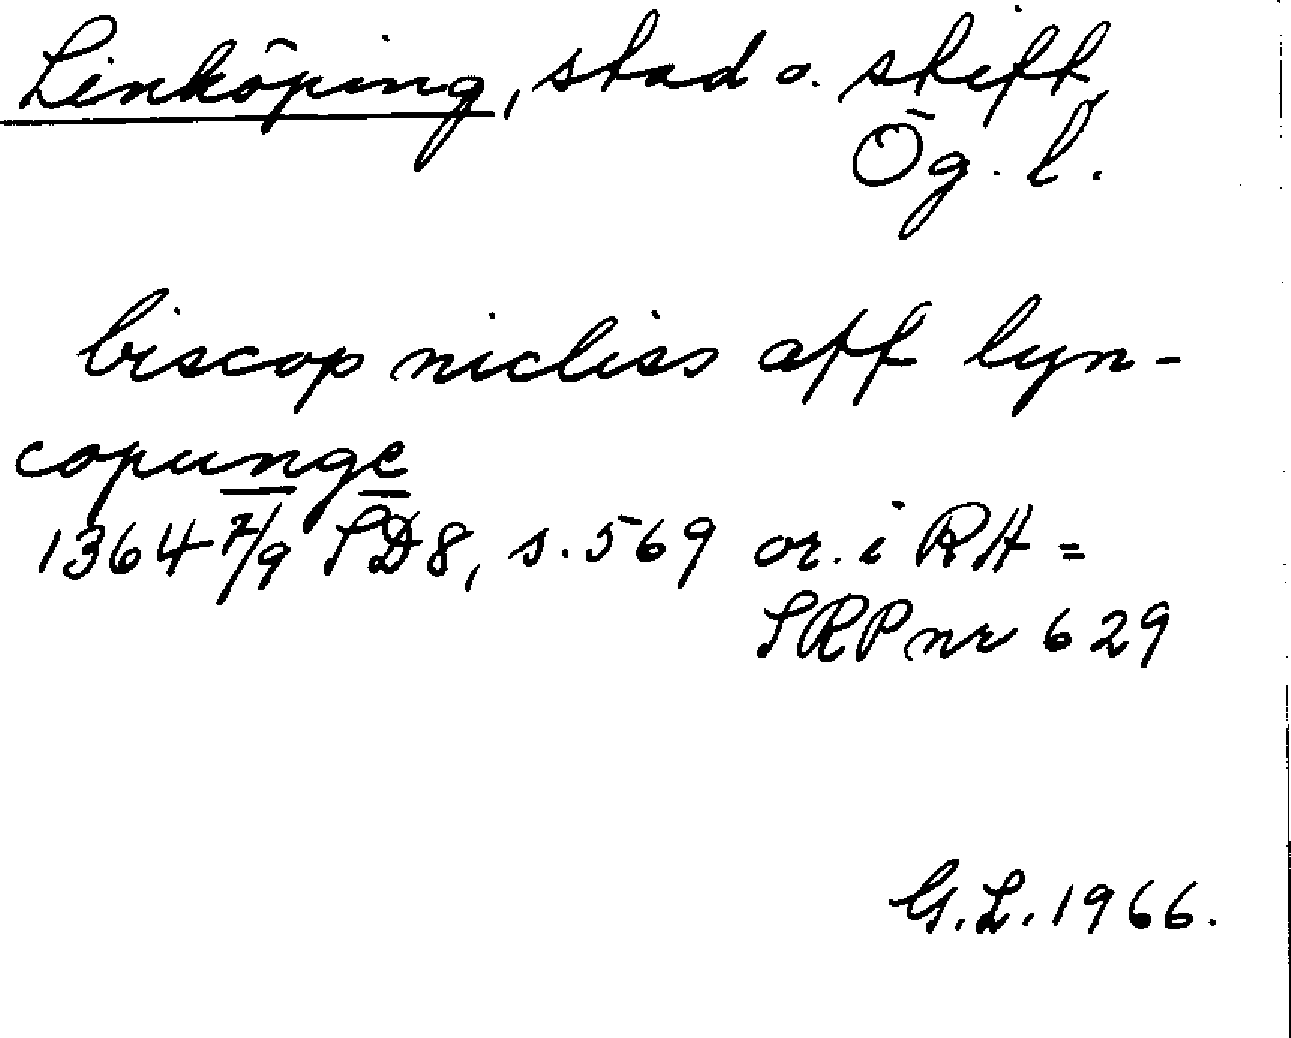 Linköping, stad o. stift,
Ög. l.
biscop nicliss aff lyn-
copunge
1364 7/9 SD 8, s. 569 or. i RA =
SRP nr 629
G. L. 1966.